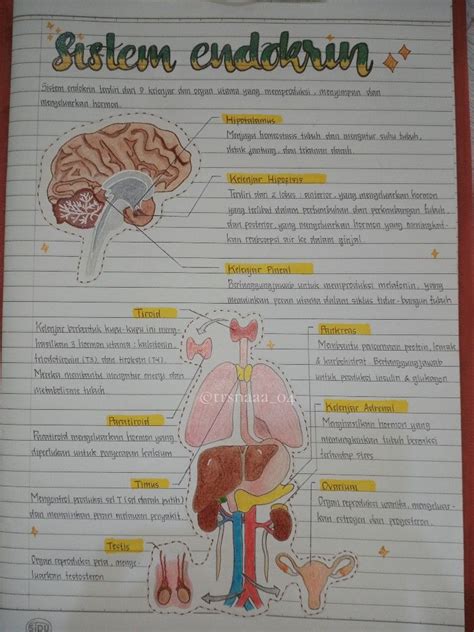 Sistem endokrin
Sistem endokrin terdiri dari 9 kelenjar dan organ utama yang memproduksi, menyimpan dan
mengeluarkan hormon.
Hipotalamus
Menjaga homeostasis tubuh dan mengatur suhu tubuh,
detak jantung, dan tekanan darah.
Kelenjar Hipofisis
Terdiri dari 2 lobus : anterior, yang mengeluarkan hormon
yang terlibat dalam pertumbuhan dan perkembangan tubuh,
dan posterior, yang mengeluarkan hormon yang meningkat-
kan reabsorpsi air ke dalam ginjal.
Kelenjar Pineal
Bertanggungjawab untuk memproduksi melatonin, yang
memainkan peran utama dalam siklus tidur-bangun tubuh
Tiroid
Kelenjar berbentuk kupu-kupu ini meng-
hasilkan 3 hormon utama : kalsitonin,
triiodotironin (T3), dan tiroksin (T4).
Mereka membantu mengatur energi dan
metabolisme tubuh.
Paratiroid
Paratiroid mengeluarkan hormon yang
diperlukan untuk penyerapan kalsium
Timus
Mengontrol produksi sel T (sel darah putih)
dan memainkan peran melawan penyakit.
Testis
Organ reproduksi pria, menge-
luarkan testosteron
Pankreas
Membantu pencernaan protein, lemak,
& karbohidrat. Bertanggungjawab
untuk produksi insulin & glukagon
Kelenjar Adrenal
Menghasilkan hormon yang
meningkatkan tubuh bereaksi
terhadap stres
Ovarium
Organ reproduksi wanita, mengeluar-
kan estrogen dan progesteron.
@trsnaaa_04
SIDU